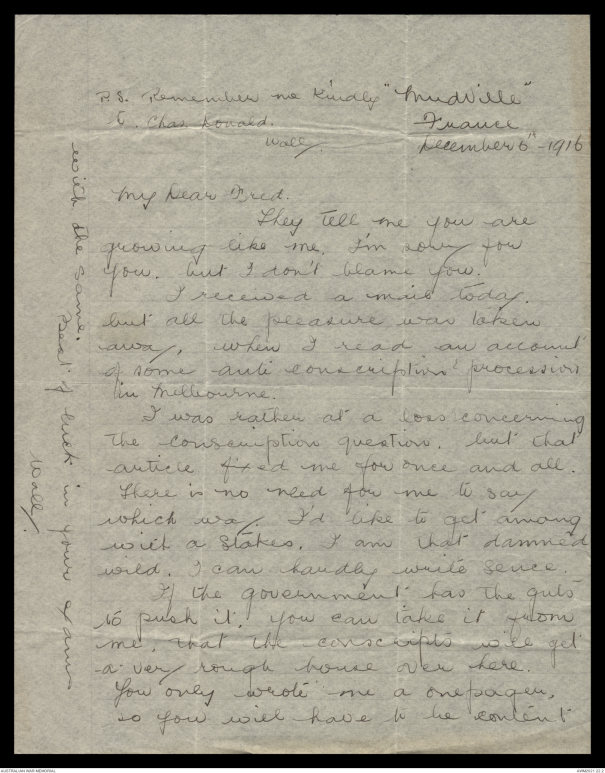 P.S. Remember me kindly "Mudville"
to Chas. Donald. France
Wally. December 6th - 1916
My Dear Fred.
They tell me you are
growing like me. I'm sorry for
you. but I don't blame you.
I received a mail today.
but all the pleasure was taken
away, when I read an account
of some anti conscription procession
in Melbourne.
I was rather at a loss concerning
the conscription question. but that
article fixed me for once and all.
There is no need for me to say
which way. I'd like to get among
with a Stokes. I am that damned
wild. I can hardly write sence.
If the government has the guts
to push it, you can take it from
me, that the conscripts will get
a very rough house over here.
You only wrote me a onepager,
so you will have to be content
with the same.
Best of luck in your exams
Wally.
AUSTRALIAN WAR MEMORIAL